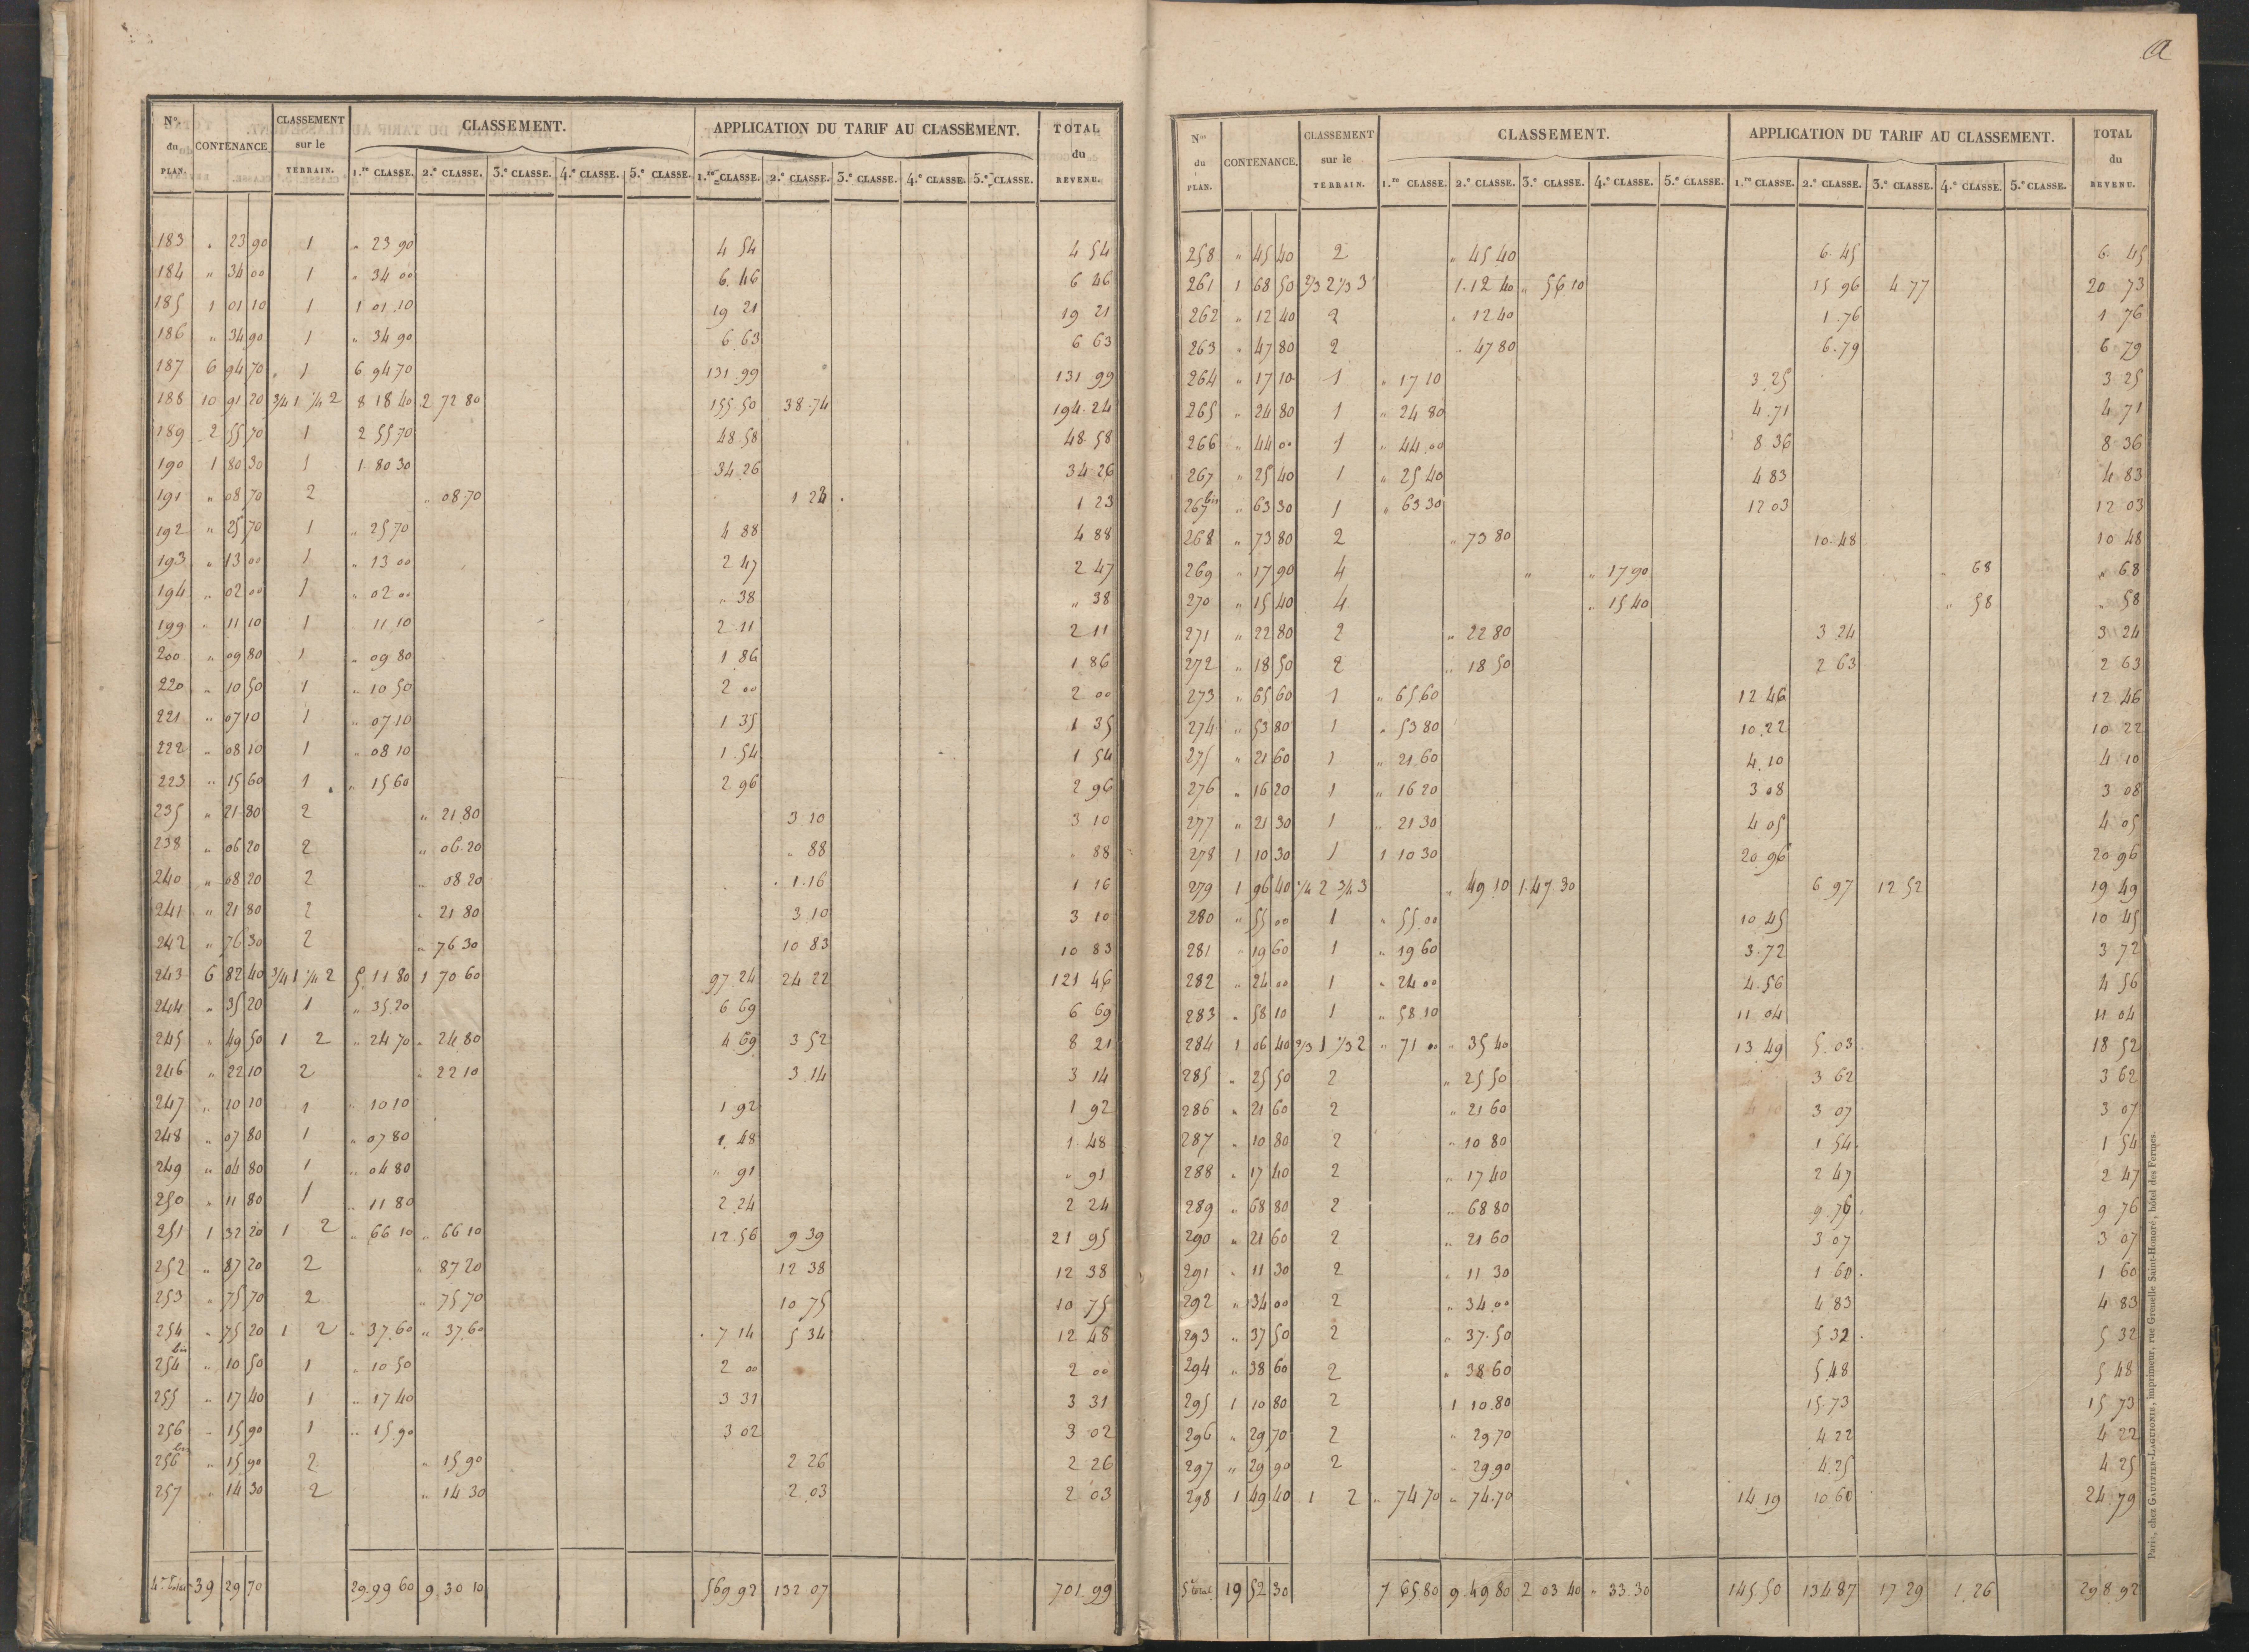 a
N.os du PLAN. CONTENANCE. CLASSEMENT sur le TERRAIN. CLASSEMENT. APPLICATION DU TARIF AU CLASSEMENT. TOTAL du REVENU.
1.re CLASSE. 2.e CLASSE. 3.e CLASSE. 4.e CLASSE. 5.e CLASSE. 1.re CLASSE. 2.e CLASSE. 3.e CLASSE. 4.e CLASSE. 5.e CLASSE.
183 " 23 90 1 " 23 90 4 54 4 54
184 " 34 00 1 " 34 00 6 46 6 46
185 1 01 10 1 1 01 10 19 21 19 21
186 " 34 90 1 " 34 90 6 63 6 63
187 6 94 70 1 6 94 70 131 99 131 99
188 10 91 20 3/4 1 1/4 2 8 18 40 2 72 80 155 50 38 74 194 24
189 2 55 70 1 2 55 70 48 58 48 58
190 1 80 30 1 1 80 30 34 26 34 26
191 " 08 70 2 " 08 70 1 23 1 23
192 " 25 70 1 " 25 70 4 88 4 88
193 " 13 00 1 " 13 00 2 47 2 47
194 " 02 00 1 " 02 00 " 38 " 38
199 " 11 10 1 11 10 2 11 2 11
200 " 09 80 1 " 09 80 1 86 1 86
220 " 10 50 1 " 10 50 2 00 2 00
221 " 07 10 1 " 07 10 1 35 1 35
222 " 08 10 1 " 08 10 1 54 1 54
223 " 15 60 1 " 15 60 2 96 2 96
235 " 21 80 2 " 21 80 3 10 3 10
238 " 06 20 2 " 06 20 " 88 " 88
240 " 08 20 2 " 08 20 1 16 1 16
241 " 21 80 2 " 21 80 3 10 3 10
242 " 76 30 2 " 76 30 10 83 10 83
243 6 82 40 3/4 1 1/4 2 5 11 80 1 70 60 97 24 24 22 121 46
244 " 35 20 1 " 35 20 6 69 6 69
245 " 49 50 1 2 " 24 70 " 24 80 4 69 3 52 8 21
246 " 22 10 2 " 22 10 3 14 3 14
247 " 10 10 1 " 10 10 1 92 1 92
248 " 07 80 1 " 07 80 1 48 1 48
249 " 04 80 1 " 04 80 " 91 " 91
250 " 11 80 1 " 11 80 2 24 2 24
251 1 32 20 1 2 " 66 10 " 66 10 12 56 9 39 21 95
252 " 87 20 2 " 87 20 12 38 12 38
253 " 75 70 2 " 75 70 10 75 10 75
254 " 75 20 1 2 " 37 60 " 37 60 7 14 5 34 12 48
254 bis " 10 50 1 " 10 50 2 00 2 00
255 " 17 40 1 " 17 40 3 31 3 31
256 " 15 90 1 " 15 90 3 02 3 02
256 bis " 15 90 2 " 15 90 2 26 2 26
257 " 14 30 2 " 14 30 2 03 2 03
4e Total 39 29 70 29 99 60 9 30 10 569 92 132 07 701 99
N.os du PLAN. CONTENANCE. CLASSEMENT sur le TERRAIN. CLASSEMENT. APPLICATION DU TARIF AU CLASSEMENT. TOTAL du REVENU.
1.re CLASSE. 2.e CLASSE. 3.e CLASSE. 4.e CLASSE. 5.e CLASSE. 1.re CLASSE. 2.e CLASSE. 3.e CLASSE. 4.e CLASSE. 5.e CLASSE.
258 " 45 40 2 " 45 40 6 45 6 45
261 1 68 50 2/3 2 1/3 3 1 12 40 " 56 10 15 96 4 77 20 73
262 " 12 40 2 " 12 40 1 76 1 76
263 " 47 80 2 " 47 80 6 79 6 79
264 " 17 10 1 " 17 10 3 25 3 25
265 " 24 80 1 " 24 80 4 71 4 71
266 " 44 00 1 " 44 00 8 36 8 36
267 " 25 40 1 " 25 40 4 83 4 83
267 bis " 63 30 1 " 63 30 12 03 12 03
268 " 73 80 2 " 73 80 10 48 10 48
269 " 17 90 4 " " 17 90 " 68 " 68
270 " 15 40 4 " 15 40 " 58 " 58
271 " 22 80 2 " 22 80 3 24 3 24
272 " 18 50 2 " 18 50 2 63 2 63
273 " 65 60 1 " 65 60 12 46 12 46
274 " 53 80 1 " 53 80 10 22 10 22
275 " 21 60 1 " 21 60 4 10 4 10
276 " 16 20 1 " 16 20 3 08 3 08
277 " 21 30 1 " 21 30 4 05 4 05
278 1 10 30 1 1 10 30 20 96 20 96
279 1 96 40 1/4 2 3/4 3 " 49 10 1 47 30 6 97 12 52 19 49
280 " 55 00 1 " 55 00 10 45 10 45
281 " 19 60 1 " 19 60 3 72 3 72
282 " 24 00 1 " 24 00 4 56 4 56
283 " 58 10 1 " 58 10 11 04 11 04
284 1 06 40 2/3 1 1/3 2 " 71 00 " 35 40 13 49 5 03 18 52
285 " 25 50 2 " 25 50 3 62 3 62
286 " 21 60 2 " 21 60 3 07 3 07
287 " 10 80 2 " 10 80 1 54 1 54
288 " 17 40 2 " 17 40 2 47 2 47
289 " 68 80 2 " 68 80 9 76 9 76
290 " 21 60 2 " 21 60 3 07 3 07
291 " 11 30 2 " 11 30 1 60 1 60
292 " 34 00 2 " 34 00 4 83 4 83
293 " 37 50 2 " 37 50 5 32 5 32
294 " 38 60 2 " 38 60 5 48 5 48
295 1 10 80 2 1 10 80 15 73 15 73
296 " 29 70 2 " 29 70 4 22 4 22
297 " 29 90 2 " 29 90 4 25 4 25
298 1 49 40 1 2 " 74 70 " 74 70 14 19 10 60 24 79
5e total 19 52 30 7 65 80 9 49 80 2 03 40 " 33 30 145 50 134 87 17 29 1 26 298 92
Paris, chez GAULTIER-LAGUIONIE, imprimeur, rue Grenelle Saint-Honoré, hôtel des Fermes.